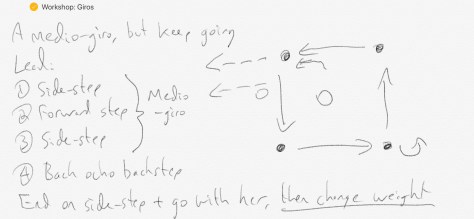 Workshop: Giros
A medio-giro, but keep going
Lead:
① Side-step
② Forward step
③ Side-step
Medio
-giro
④ Back ocho backstep
End on side-step + go with her, then change weight